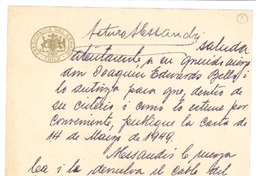 Arturo Alessandri
saluda
atentamente a su querido amigo
don Joaquin Edwards Bello i
lo autoriza para que, dentro de
su criterio i como lo estime por
conveniente, publique la carta de
14 de Marzo de 1949.
Alessandri le ruega
lea i le devuelva el cable del